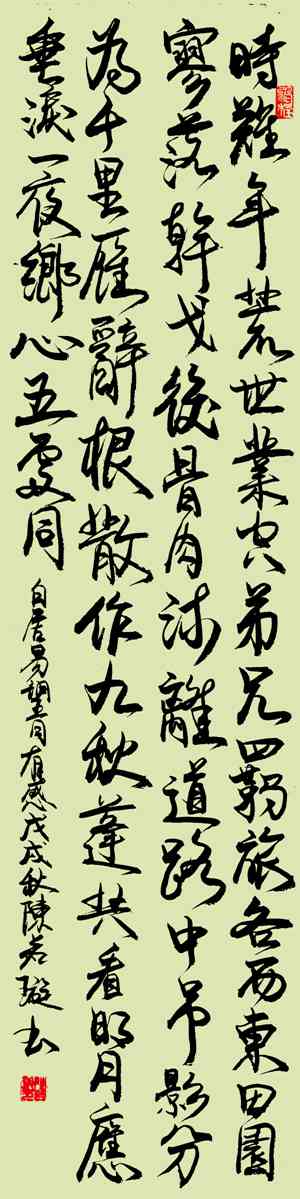 時難年荒世業空弟兄羈旅各西東田園
寥落幹戈後骨肉流離道路中吊影分
為千里雁辭根散作九秋蓬共看明月應
垂淚一夜鄉心五處同
白居易望月有感戊戌秋陳若璇书